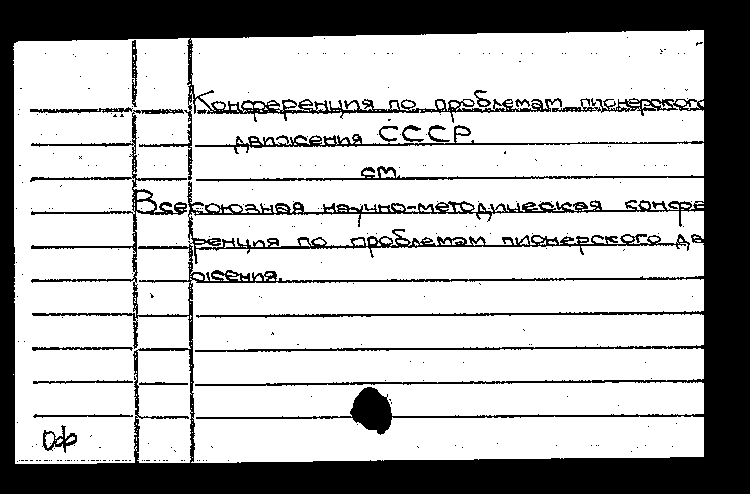 Конференция по проблемам пионерского
движения СССР.
см.
Всесоюзная научно-методическая конфе
ренция по проблемам пионерского дв
жения.
Оф